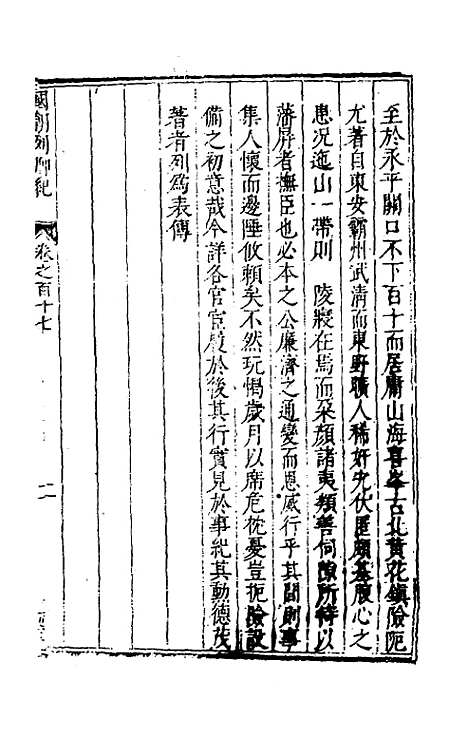 至於永平關口不下百十而居庸山海喜峯古北黃花鎮險阨
尤著自東安霸州武清而東野曠人稀奸宄伏匿頗基腹心之
患况迤山一帶則　陵寢在焉而朶顏諸夷類善伺隙所特以
藩屏者撫臣也必本之公廉濟之通變而恩威行乎其間則事
集人懷而邊陲攸賴矣不然玩愒歲月以席危枕憂豈扼險設
備之初意哉今詳各官宦蹟於後其行實見於事紀其勳德茂
著者列爲表傳
國朝列卿紀
卷之百十七
二